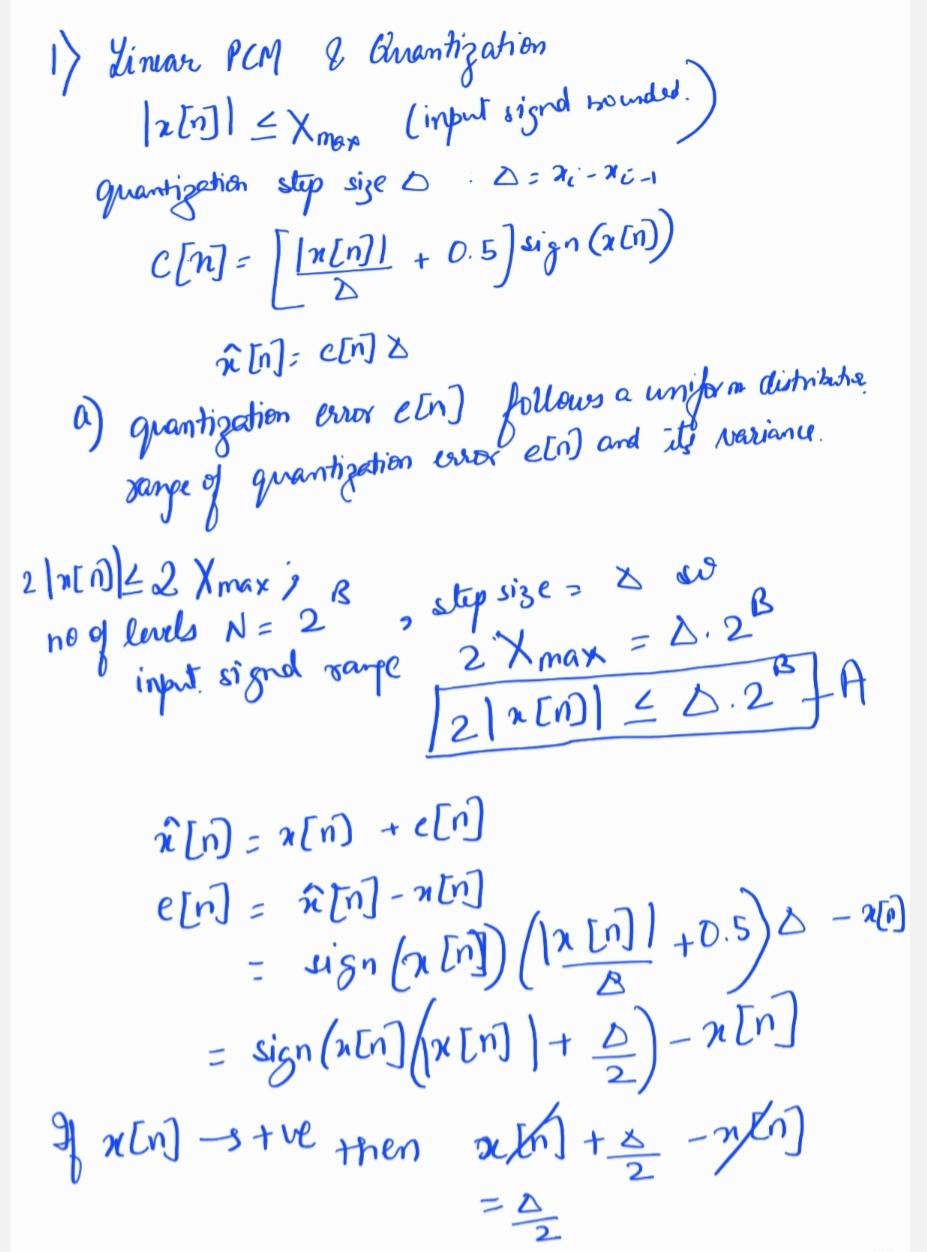 1) Linear PCM & Quantization
|x[n]| ≤ Xmax (input signal bounded.)
quantization step size Δ . Δ = xi - xi-1
c[n] = [|x[n]|/Δ + 0.5] sign (x[n])
x̂[n] = c[n] Δ
a) quantization error e[n] follows a uniform distributie
range of quantization error e[n] and its variance.
2|x[n]| ≤ 2 Xmax ;
no of levels N = 2^B , step size = Δ so
input signal range 2 Xmax = Δ.2^B
2|x[n]| ≤ Δ.2^B } A
x̂[n] = x[n] + e[n]
e[n] = x̂[n] - x[n]
= sign (x[n]) (|x[n]|/Δ + 0.5) Δ - x[n]
= sign (x[n] (|x[n]| + Δ/2) - x[n]
If x[n] → +ve then x[n] + Δ/2 - x[n]
= Δ/2